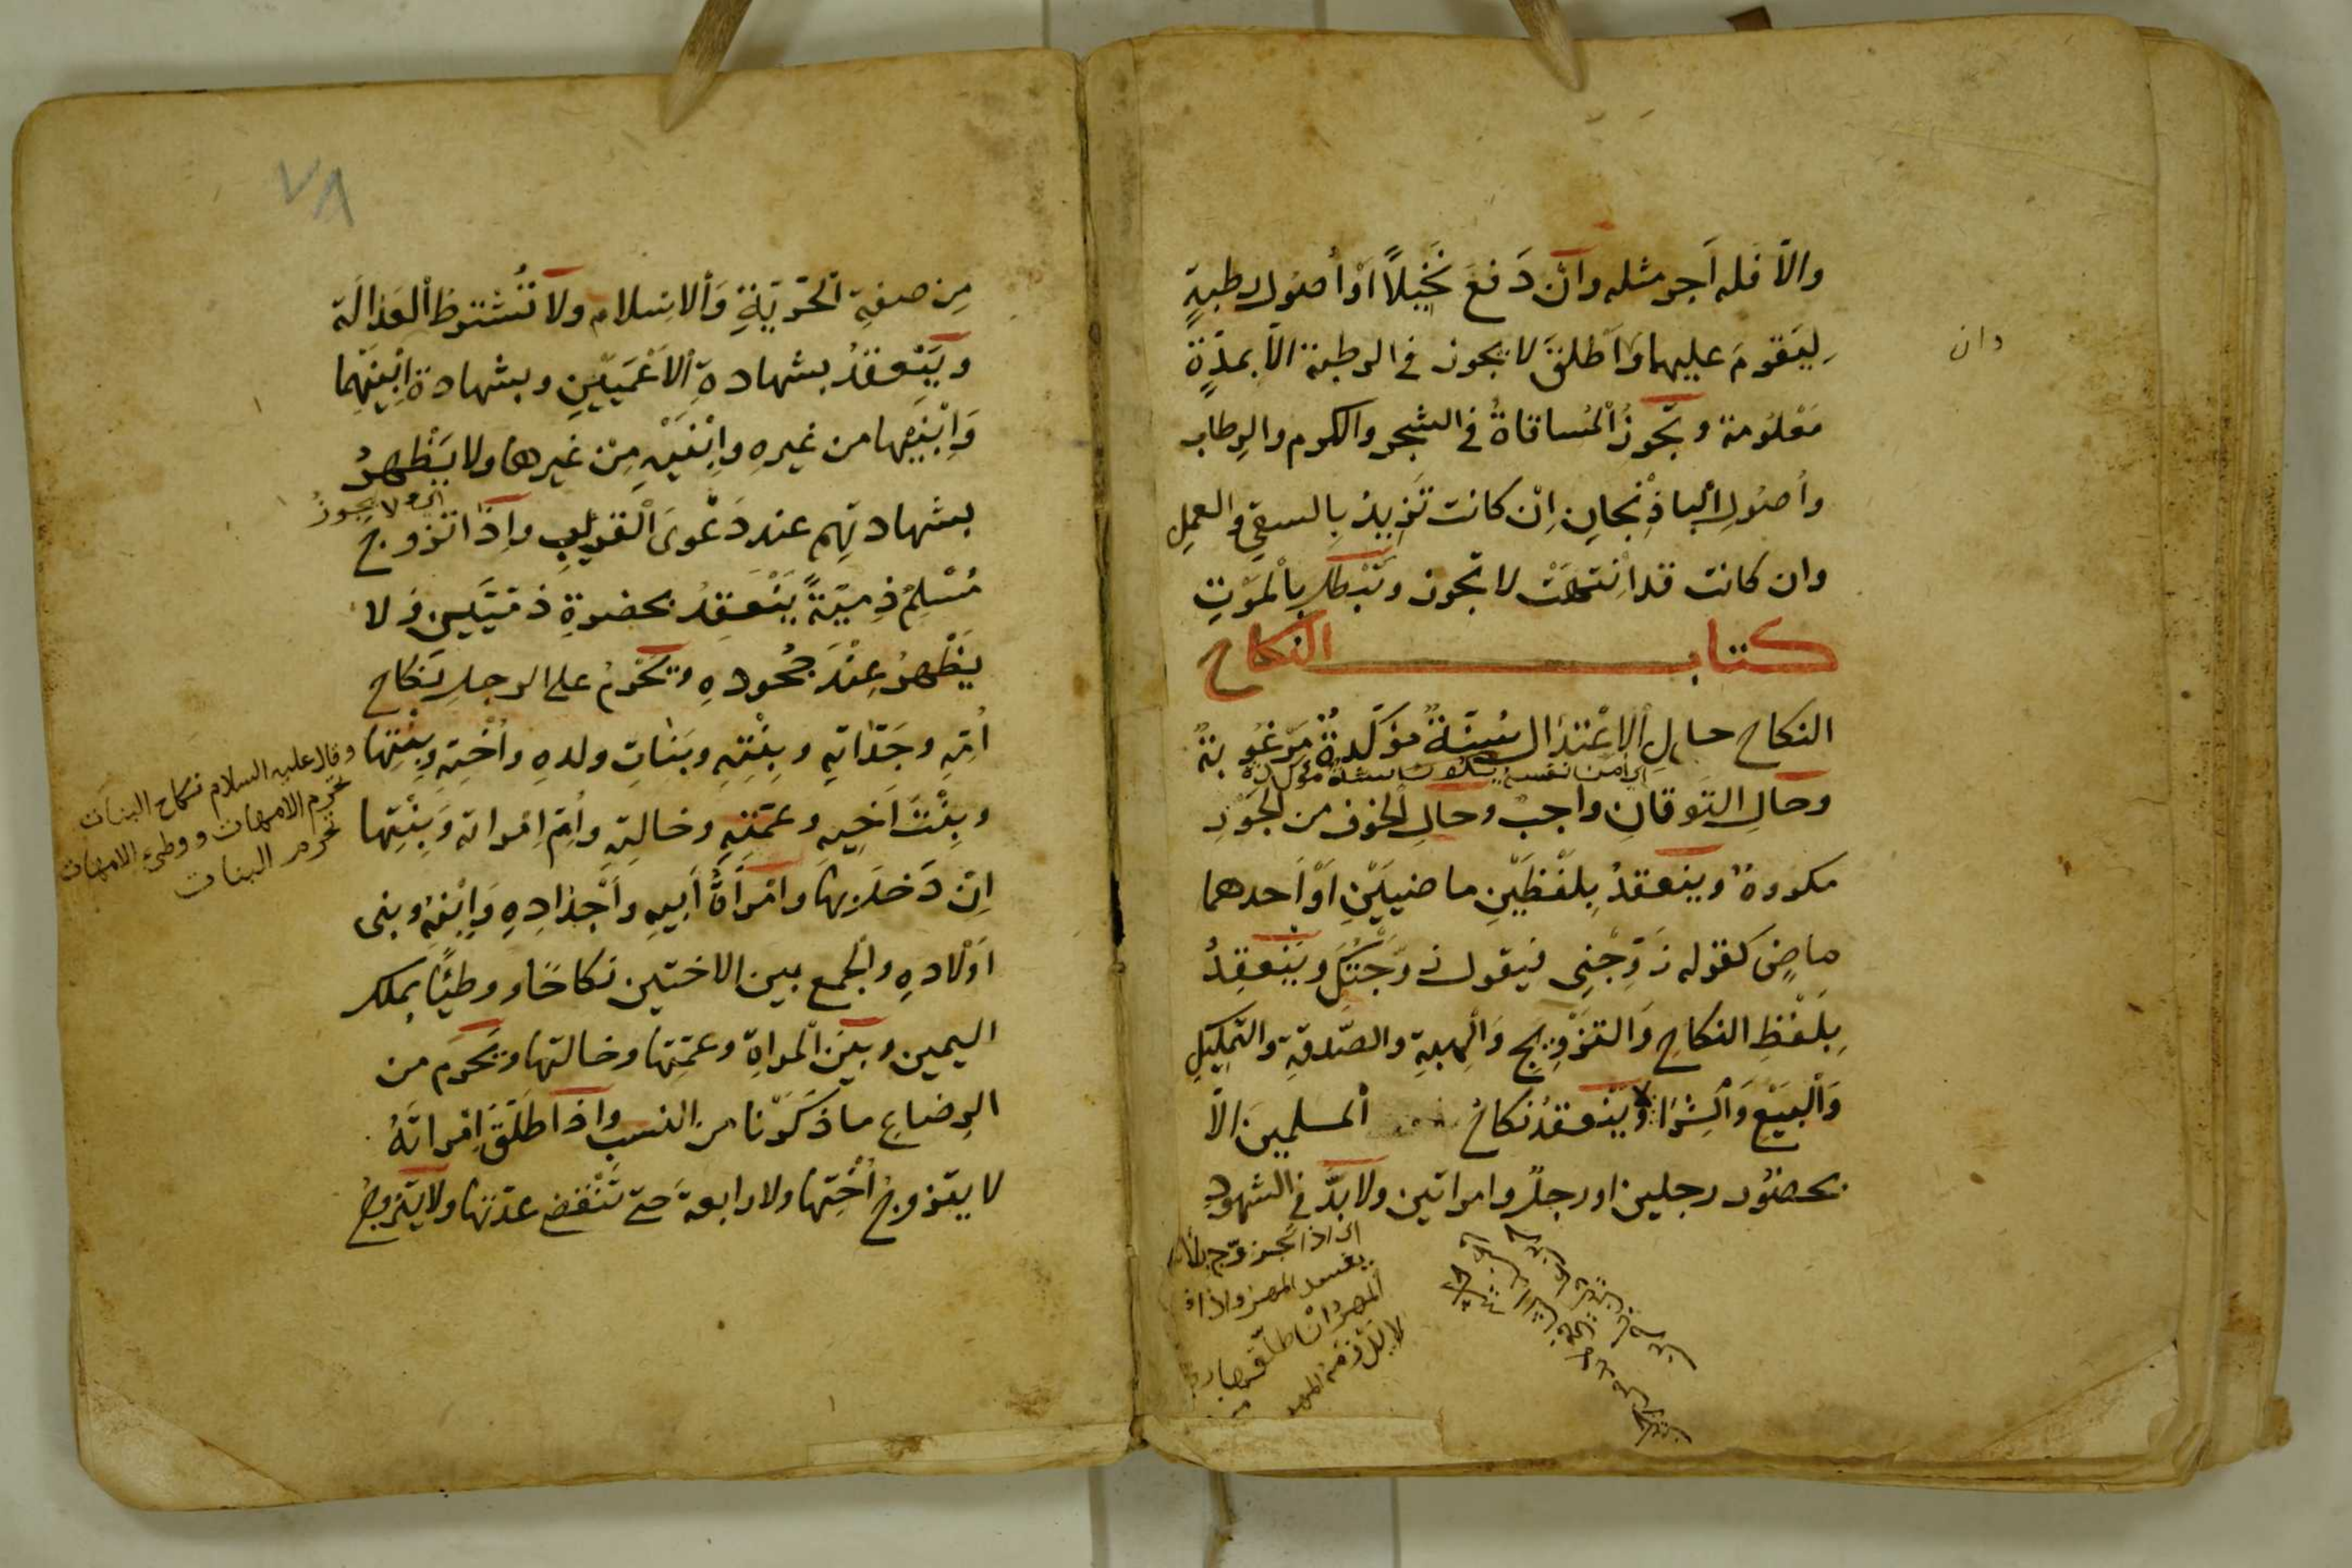 والّا فله اَجر مثله وان دَفعَ نَخِيلاً اَوْ أُصُول رطبةٍ
لِيَقومَ عليهما وَاَطْلقَ لا يجوز في الرطبة الّا بمدّةٍ
دان
مَعْلُومة وتجوزُ اْلمُساقاةُ في الشجر والكرم والرِطاب
وأصُولِ اْلباذِنْجانِ اِنْ كانت تَزِيدُ بِالسقي والعملِ
وان كانت قد اْنتهَتْ لا تجوز وتَبْطل بِاْلمَوْتِ
كتاب النكاح
النكاح حالِ اْلاِعْتدال سُنّةٌ مؤكّدةٌ مَرْغُوبةٌ
وحالِ التَوقانِ واجبٌ وحالِ اْلخوف من اْلجَوْرِ
مكروهٌ وينعقدُ بِلَفْظَيْنِ ماضيَيْنِ اَوْ اَحدهما
ماضٍ كقوله زَوِّجْنِي فيقول زَوَّجْتُكَ ويَنْعقِدُ
بِلَفْظِ النكاحِ وَالتزْوِيجِ وَاْلهبةِ والصّدقةِ والتّمليكِ
وَاْلبَيْعِ وَاْلشِرَا ولا يَنْعقدُ نكاحُ اْلمسلمين الّا
بحضُور رجلين او رجلٍ وامراتين ولا بدَّ في الشهودِ
المهرُ
لا يَلْزَمه المهر
مِن صفةِ اْلحُرّيّةِ وَاْلاِسلام ولا تُشْترطُ اْلعَدالَة
ويَنْعقدُ بشهادةِ اْلاَعْمَيَيْنِ وبشهادة اِبْنَيْهما
وَاِبْنَيْها من غيرهِ واِبْنَيْهِ مِنْ غيرها ولا يَظْهرُ
اى ولا يجوزُ
بشهادتِهم عند دَعْوَى اْلقريبِ واِذَا تزوجَ
مُسْلمٌ ذِميّةً يَنْعقدُ بحضرةِ ذميَّين وَلا
يَظْهرُ عِنْدَ جُحُودهِ وتَحْرمُ على الرجلِ نكاح
اُمّهِ وجَدّاتهِ وبِنْتهِ وبَناتِ ولدهِ واُخْتهِ وبِنْتِها
وبِنْتَ اَخيهِ وعمّتهِ وخالتِهِ واُمّ امراته وَبِنْتِها
وقال عليه السلام نكاح البنات
تحرم الامهات ووطئ الامهات
تحرم البنات
اِنْ دَخلَ بها وامْرأَةُ أبيهِ واَجْدادِهِ وَاِبْنهِ وبنى
اَوْلادهِ والْجمع بين الاختين نكاحًا ووطئًا بملك
اليمين وبَيْنَ اْلمراةِ وعمّتِها وخالتها ويَحْرم من
الرِضاعِ ما ذَكَرْنا من النسب واذا طَلّقَ امْراتَهُ
لا يتزوجُ اُخْتها ولا رابعةً حتى تَنْقضي عدّتها ولا يتزوجُ
٧٨